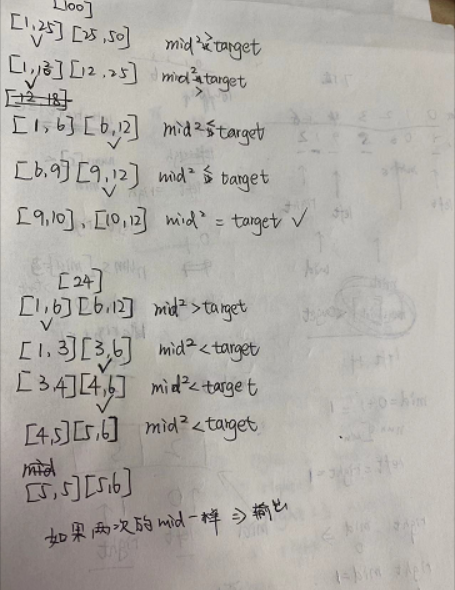 [100]
[1,25] [25,50] mid²>target
[1,12] [12,25] mid²>target
[12 18]
[1,6] [6,12] mid²≤target
[6,9] [9,12] mid²≤target
[9,10], [10,12] mid² = target ✓
[24]
[1,6] [6,12] mid²>target
[1,3] [3,6] mid²<target
[3,4] [4,6] mid²<target
[4,5] [5,6] mid²<target
mid
[5,5] [5,6]
如果两次的mid一样 ⇒ 输出